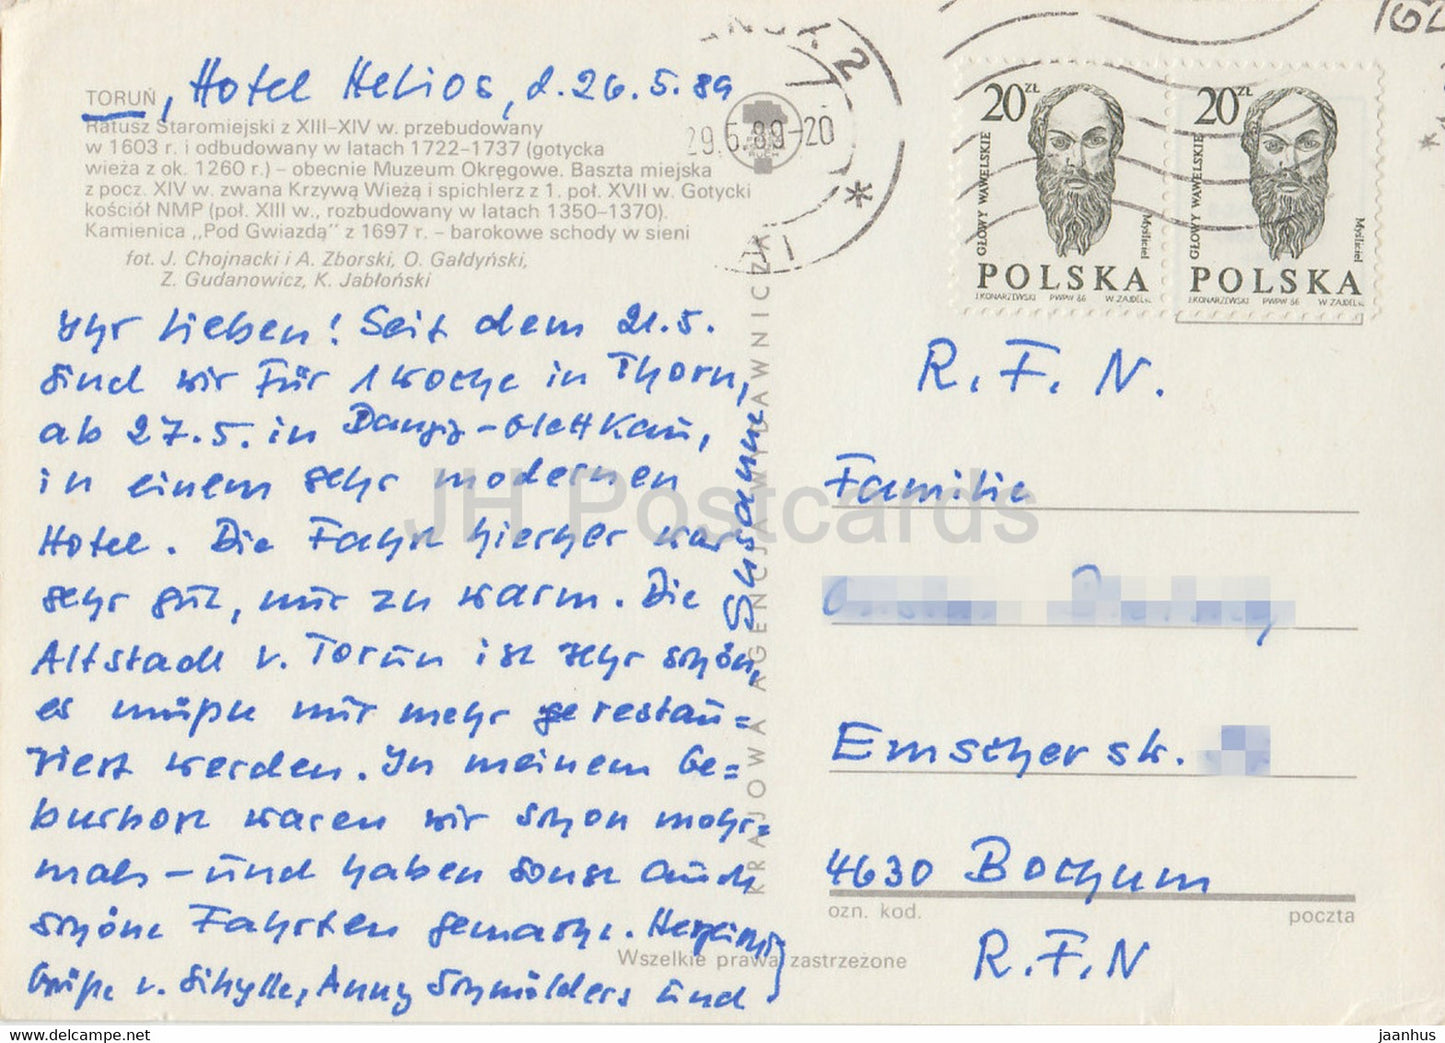 TORUŃ, Hotel Helios, d. 26.5.89
Ratusz Staromiejski z XIII–XIV w. przebudowany
w 1603 r. i odbudowany w latach 1722–1737 (gotycka
wieża z ok. 1260 r.) – obecnie Muzeum Okręgowe. Baszta miejska
z pocz. XIV w. zwana Krzywą Wieżą i spichlerz z 1. poł. XVII w. Gotycki
kościół NMP (poł. XIII w., rozbudowany w latach 1350–1370).
Kamienica „Pod Gwiazdą" z 1697 r. – barokowe schody w sieni
fot. J. Chojnacki i A. Zborski, O. Gałdyński,
Z. Gudanowicz, K. Jabłoński
Ihr Lieben! Seit dem 21.5.
sind wir für 1 Woche in Thorn,
ab 27.5. in Danzig-Glettkau,
in einem sehr modernen
Hotel. Die Fahrt hierher war
sehr gut, nur zu warm. Die
Altstadt v. Torun ist sehr schön,
es müßte nur mehr restau=
riert werden. In meinem Ge=
burtsort waren wir schon mehr=
mals – und haben sonst auch
schöne Fahrten gemacht. Herzliche
Grüße v. Sibylle, Anny Schmölders und
Susanne
KRAJOWA AGENCJA WYDAWNICZA
RUCH
Wszelkie prawa zastrzeżone
2
29.5.89-20
20 ZŁ
GŁOWY WAWELSKIE
Myśliciel
POLSKA
J.KONARZEWSKI PWPW 86 W. ZAJDEL sc.
20 ZŁ
GŁOWY WAWELSKIE
Myśliciel
POLSKA
J.KONARZEWSKI PWPW 86 W. ZAJDEL sc.
R.F.N.
Familie
Emscherstr.
4630 Bochum
ozn. kod. poczta
R.F.N
JH Postcards
www.delcampe.net
jaanhus